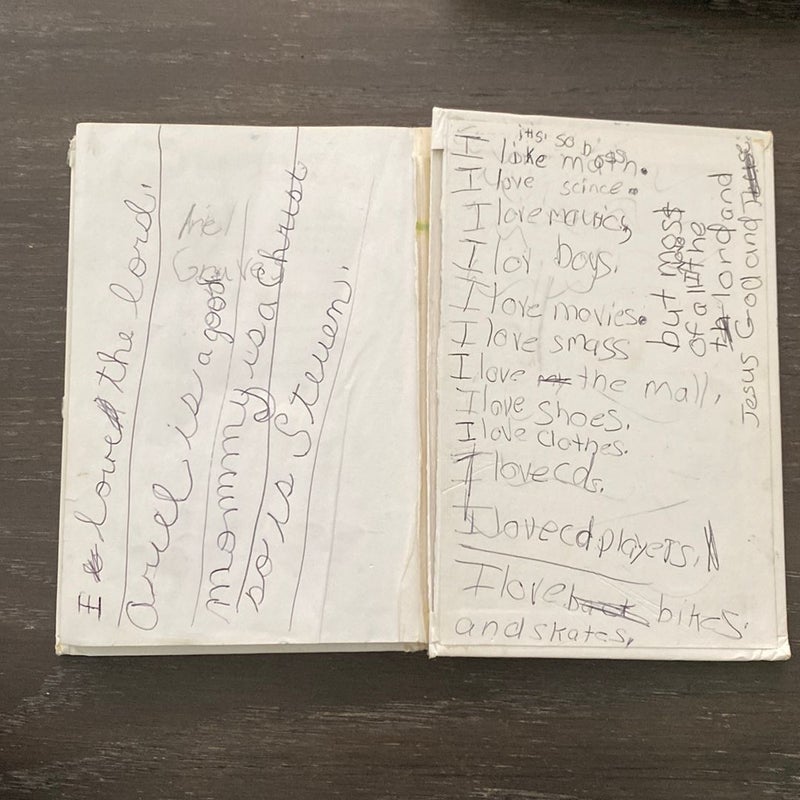 I loved the lord.
Ariel is a good
mommy is a Christ
so is Steven.
Ariel
its so big
I like math.
I love scince.
I love mauricy
I lov boys.
I love movies.
I love smass
I love the mall.
I love shoes.
I love clothes.
I love cds.
I love cd players.
I love bikes.
and skates.
but most
of all the
lord and
Jesus God and